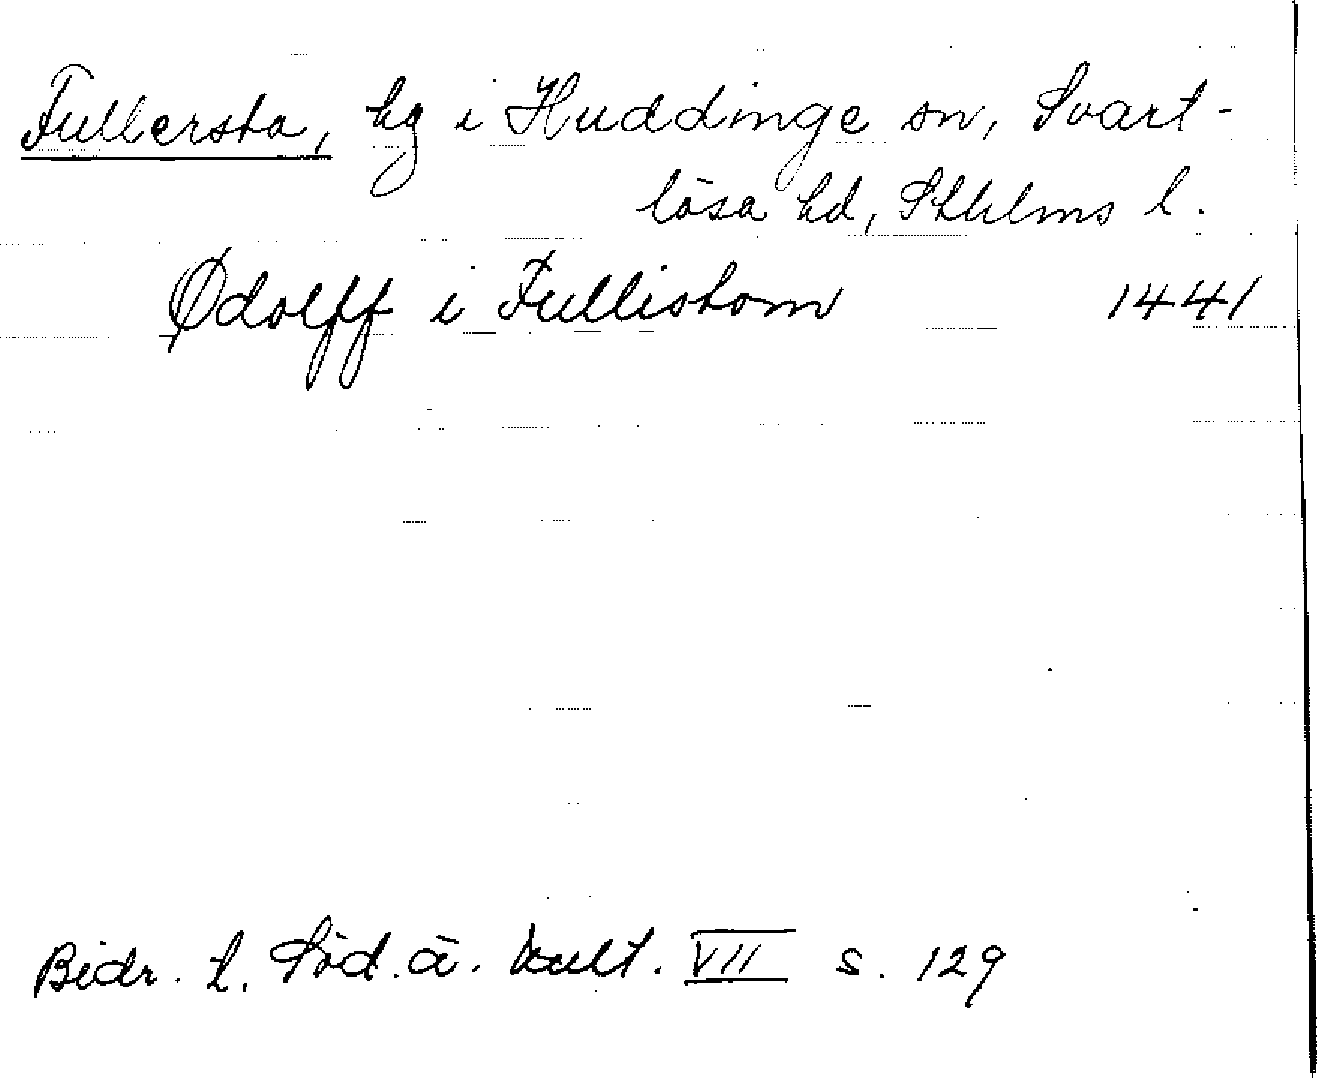 Fullersta, hg i Huddinge sn, Svart-
lösa hd, Sthlms l.
Ødolff i Fullistom 1441
Bidr. t. Söd. ä. kult. VII s. 129